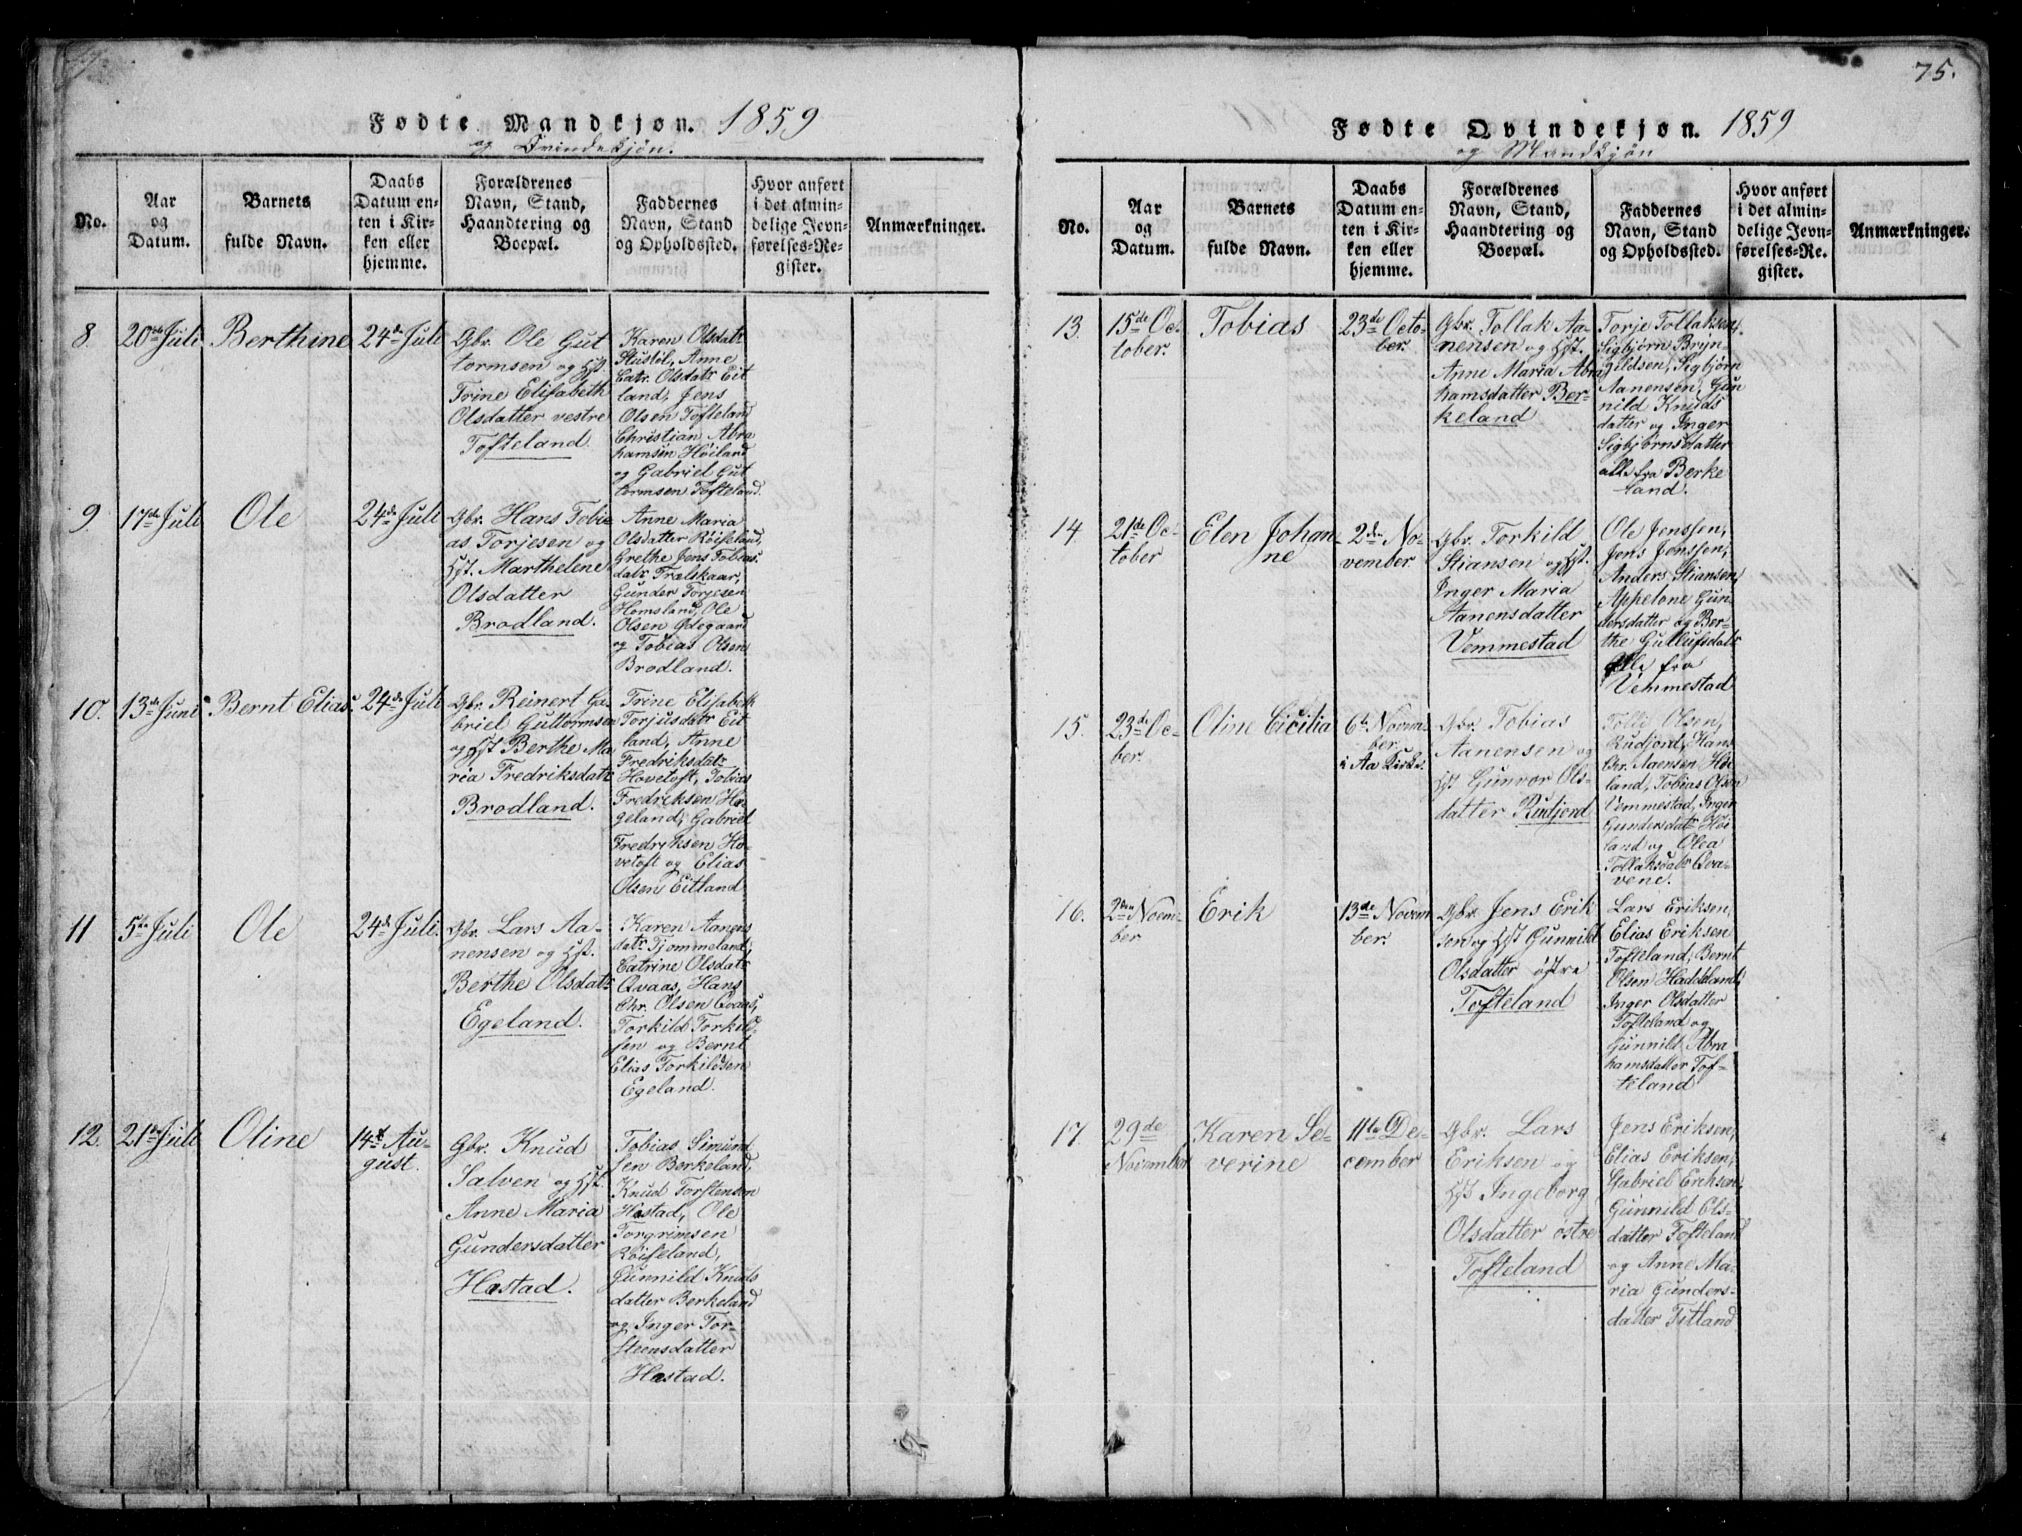 Fødte Mandkjøn. 1859
og Qvindekjøn.
No.
Aar
og
Datum.
Barnets
fulde Navn.
Daabs
Datum en-
ten i Kir-
ken eller
hjemme.
Forældrenes
Navn, Stand,
Haandtering og
Boepæl.
Faddernes
Navn, Stand
og Opholdssted.
Hvor anført
i det almin-
delige Jevn-
førelses-Re-
gister.
Anmærkninger.
8.
20de Juli
Berthine
24de Juli
Gbr. Ole Gut
tormsen og Hst.
Trine Elisabeth
Olsdatter vestre
Tofteland
Karen Olsdatr
Stustøl, Anne
Catr. Olsdatr Eit
land, Jens
Olsen Tofteland
Christian Abra
hamsen Høiland
og Gabriel Gut
tormsen Tofteland.
9.
17de Juli
Ole
24de Juli
Gbr. Hans Tobi-
as Torjesen og
Hst. Marthelene
Olsdatter
Brodland.
Anne Maria
Olsdatter Røiseland,
Grethe Jens Tobias
datr Trælskaar,
Gunder Torjesen
Homsland, Ole
Olsen Ødegaard
og Tobias Olsen
Brodland.
10.
13de Juni
Bernt Elias
24de Juli
Gbr. Reinert Ga-
briel Guttormsen
og Hst Berthe Ma
ria Fredriksdatr
Brodland.
Trine Elisabeth
Torjusdatr Eit
land, Anne
Fredriksdatr
Hovetoft, Tobias
Fredriksen Hæ-
geland, Gabriel
Fredriksen Ho-
vetoft og Elias
Olsen Eitland
11
5te Juli
Ole
24de Juli.
Gbr. Lars Aa-
nensen og Hst.
Berthe Olsdatr
Egeland.
Karen Aanens
datr Tjømmeland,
Catrine Olsdatr
Qvaas, Hans
Chr. Olsen Qvaas,
Torkild Torkild
sen og Bernt
Elias Torkildsen
Egeland.
12.
21de Juli
Oline
14de Au-
gust.
Gbr. Knud
Salven og Hst.
Anne Maria
Gundersdatter
Hæstad.
Tobias Simund
sen Berkeland,
Knud Torstensen
Hæstad, Ole
Torgrimsen
Røiseland,
Gunnild Knuds
datter Berkeland
og Inger Tor-
steensdatter
Hæstad.
75.
Fødte Qvindekjøn. 1859
og Mandkjøn
No.
Aar
og
Datum.
Barnets
fulde Navn.
Daabs
Datum en-
ten i Kir-
ken eller
hjemme.
Forældrenes
Navn, Stand,
Haandtering og
Boepæl.
Faddernes
Navn, Stand
og Opholdssted.
Hvor anført
i det almin-
delige Jevn-
førelses-Re-
gister.
Anmærkninger.
13.
15de Oc-
tober.
Tobias
23de Octo-
ber.
Gbr. Tollak Aa-
nensen og Hst.
Anne Maria Abra
hamsdatter Ber-
keland
Torje Tollaksen,
Sigbjørn Bryn-
gildsen, Sigbjørn
Aanensen, Gun
nild Knuds
datter og Inger
Sigbjørnsdatter
alle fra Berke
land.
14.
21de Oc-
tober
Elen Johan-
ne
2den No-
vember
Gbr. Torkild
Stiansen og Hst.
Inger Maria
Aanensdatter
Vemmestad
Ole Jenssen,
Jens Jenssen,
Anders Stiansen,
Appelone Gun
dersdatter og Ber-
the Gullufsdatr
alle fra
Vemmestad
15.
23de Oc-
ber.
Oline Cicilia
6te Novem-
ber.
i Aa Kirke.
Gbr. Tobias
Aanensen og
Hst Gunvor Ols-
datter Rudjord
Tolli Olsen,
Rudjord, Hans
Chr. Aaensen Høi
land, Tobias Olsen
Vemmestad, Inger
Gundersdatr Høi
land og Olea
Tollaksdatr Qva-
vene.
16.
2den Noem-
ber
Erik
13de Novem
ber.
Gbr. Jens Erik
sen og Hst Gunnild
Olsdatter østre
Tofteland
Lars Eriksen,
Elias Eriksen
Tofteland, Bernt
Olsen Haddeland,
Inger Olsdatter
Tofteland og
Gunnild Abra
hamsdatter Tof-
teland
17.
29de
November
Karen Se-
verine
11te De-
cember
Gbr. Lars
Eriksen og
Hst Ingeborg
Olsdatter østre
Tofteland
Jens Eriksen,
Elias Eriksen,
Gabriel Eriksen,
Gunnild Ols-
datter Tofteland
og Anne Ma-
ria Gunders-
datter Titland